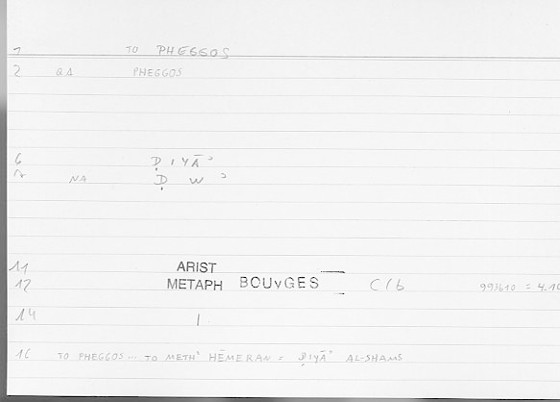 1 TO PHEGGOS
2 QA PHEGGOS
6 ḌIYĀʾ
7 NA Ḍ W ʾ
11 ARIST
12 METAPH BOUYGES C/b 993b10 = 4.10
14 1
16 TO PHEGGOS ... TO METHʾ HĒMERAN = ḌIYĀʾ AL-SHAMS